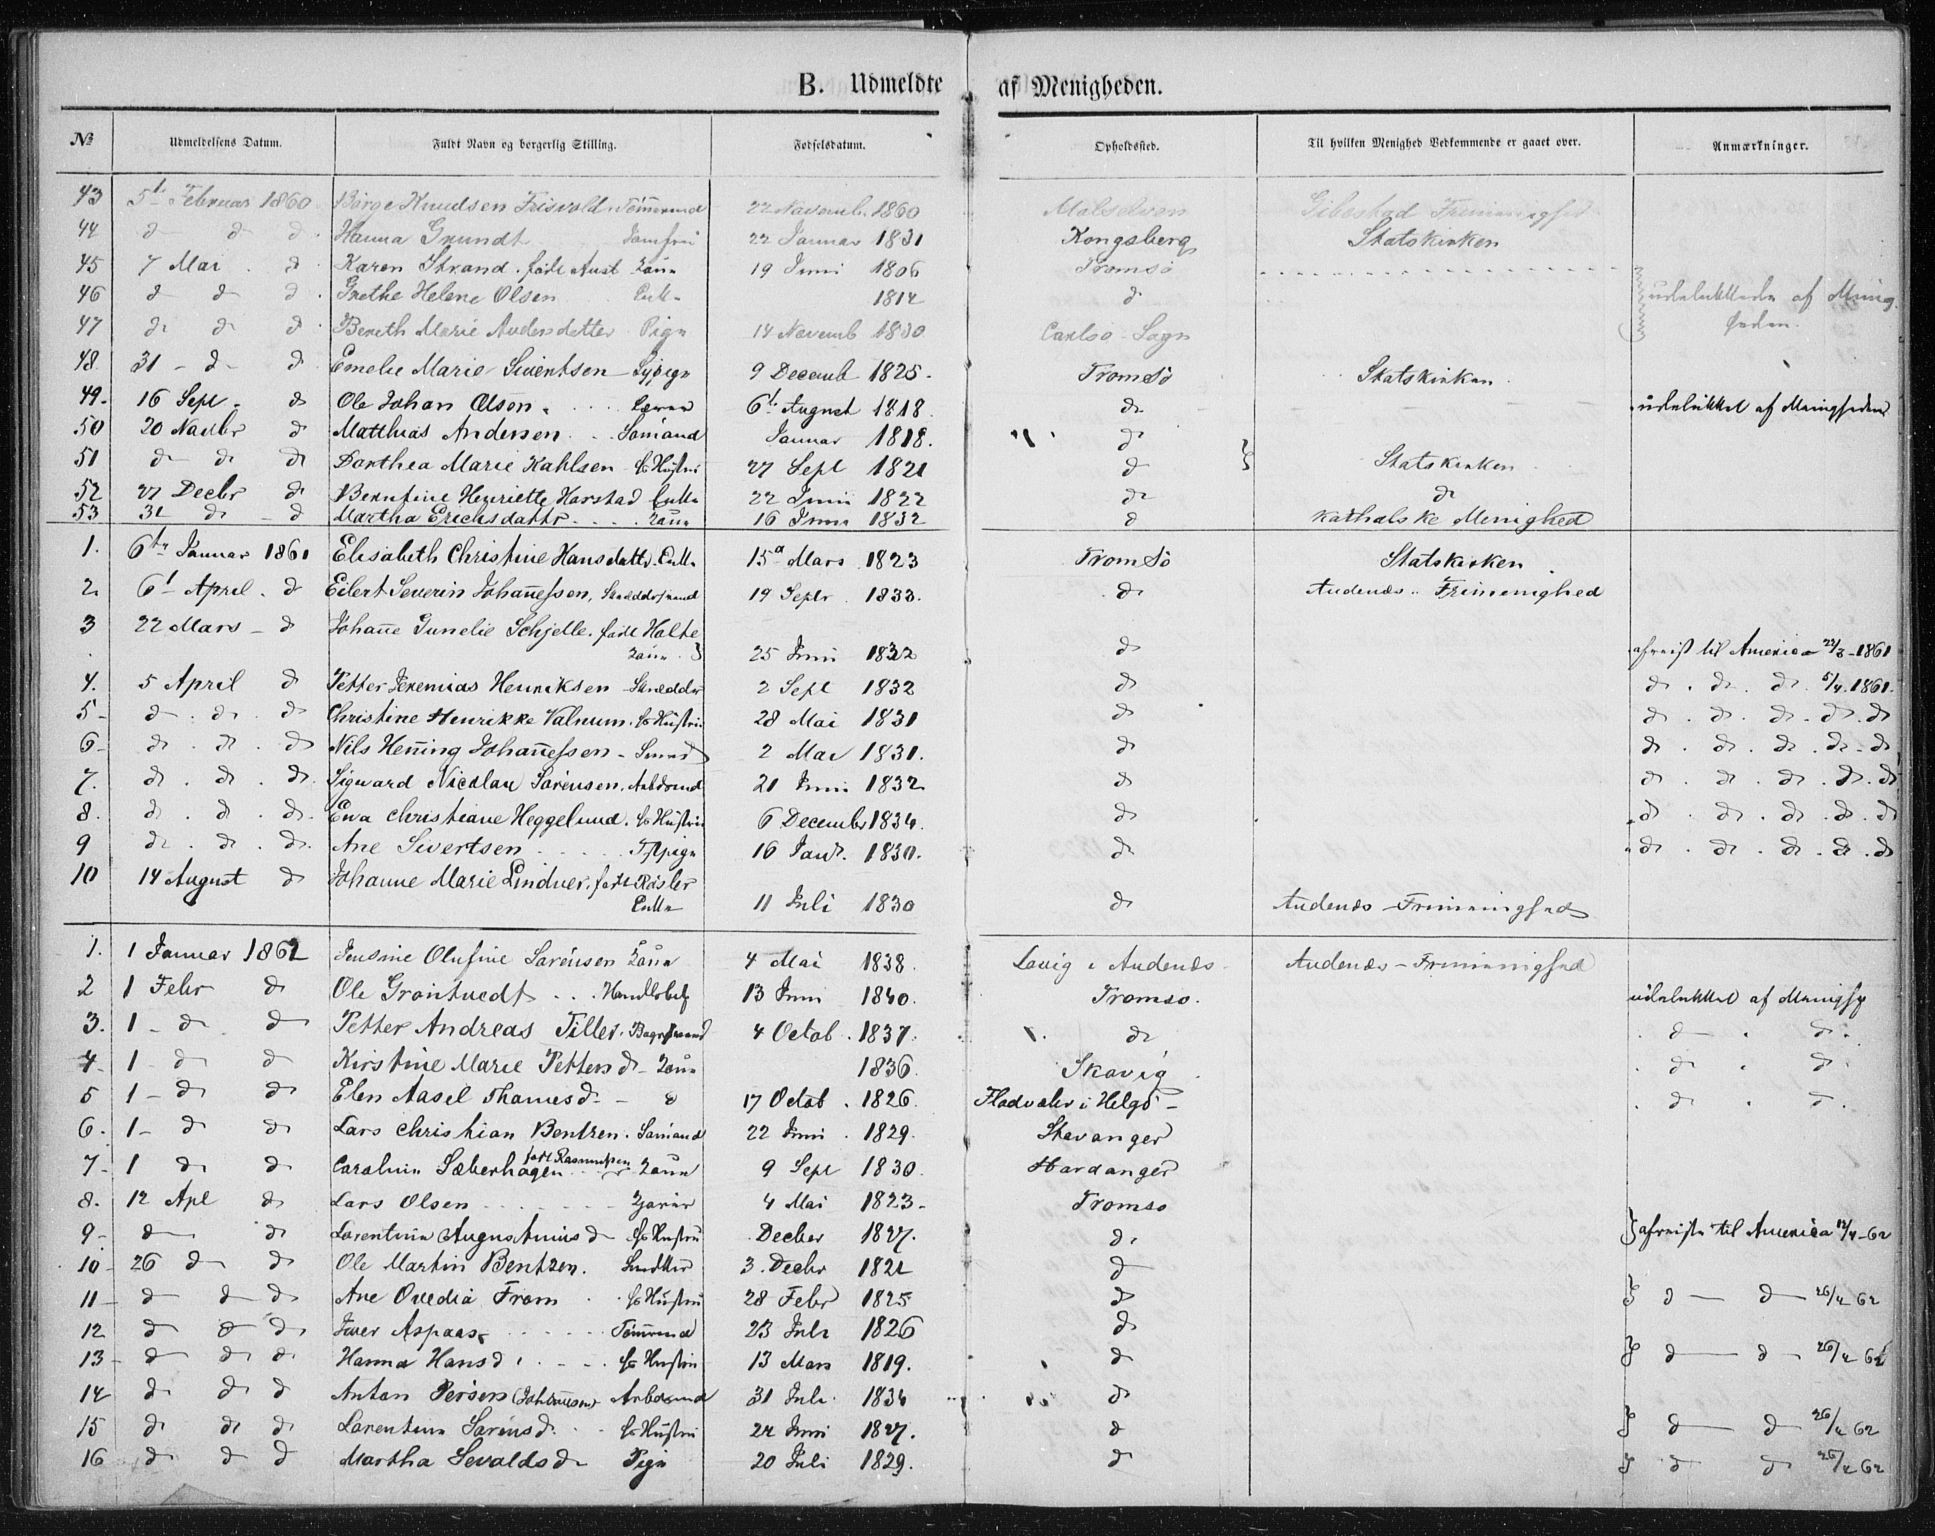 B. Udmeldte af Menigheden.
№ Udmeldelsens Datum. Fuldt Navn og borgerlig Stilling. Fødselsdatum. Opholdssted. Til hvilken Menighed Vedkommende er gaaet over. Anmærkninger.
43 5t Februar 1860 Børge Knudsen Frisvold. Tømrmd 22 Novemb. 1860 Malselven Gibostad
44 d d d. Hanna Grundt Jomfru 22 Januar 1831 Kongsberg Statskirken
45 7 Mai d Karen Strand. født Aust Kone 19 Juni 1806 Tromsö
46 d d d. Grethe Helene Olsen Enke 1814 d udelukkede af Menig-
47 d d d Bereth Marie Andersdatter Pige 14 Novemb 1830 Carlsö Sogn heden.
48. 31 - d d Emelie Marie Sivertsen Sypige 9 Decemb 1825. Tromsö Statskirken
49. 16 Sept. d Ole Johan Olson. 6te August 1818. d udelukket af Menigheden
50 20 Novbr d Matthias Andersen Sømand Januar 1818. d
51 d d d Dorthea Marie Kahlsen Hustru 27 Sept 1821 d Statskirken
52 27 Decbr d Berntine Henriette Harstad Enke 22 Juni 1822 d d
53 31 d d Martha Erichsdattr. Kone 16 Juni 1832 d katholske Menighed
1. 6te Januar 1861 Elisabeth Christine Hansdattr. Enke 15d Mars 1823 Tromsö Statskirken
2. 6t April. d Eilert Severin Johan̄essen, Skræddersvend 19 Septr. 1833. d Andenæs Frimenighed
3 22 Mars d Johan̄e Gunelie Schjelle. født Holte
Kone 25 Juni 1832 d afreist til America 22/3-1861
4. 5 April d Petter Jeremias Henriksen Skrædder 2 Sept 1832 d d. d. d. 5/4.1861.
5 d. d. d Christine Henrikke Valnum. Hustru 28 Mai 1831 d d. d. d. d. d
6 d. d. d Nils Hen̄ing Johan̄essen Smed 2 Mai 1831. d d. d. d. d. d
7. d. d. d. Sigvard Nicolau Sörensen. Arbdsmd 21 Juni 1832 d d. d. d. d. d
8. d. d. d. Ewa Christiane Heggelund. Hustru 6 Decembr 1834. d d. d. d. d. d
9 d. d. d. Ane Sivertsen 16 Janr. 1830. d d. d. d. d. d
10 14 August d Johanne Marie Lindner. født Røsler
Enke 11 Juli 1830 d Andenæs Frimenighed
1. 1 Januar 1862 Jensine Olufine Sörensen Kone 4 Mai 1838. i Andenæs Andenæs Frimenighed
2 1 Febr d Ole Gröntvedt 13 Juni 1840. Tromsö. udelukket af Menigh
3. 1 d d Petter Andreas Tiller. Bagersvend 4 Octob. 1837. d d d
4 1 d d Kirstine Marie Petters d. Kone 1836. Skavig d d
5 1 d d Elen Aasel Thomes d. d 17 Octob. 1826. i Helgö d d
6. 1 d d Lars Christian Bentzen. Sømand 22 Juni. 1829. Stavanger
7 1 d d Carolina Sæberhagen født Rasmussen Kone 9 Sept 1830. Hardanger
8. 12 Apl d Lars Olsen 4 Mai 1823. Tromsö
9 d d Lorentine Augustinus d Hustru Decber 1827. d afreiste til America 12/4-62
10 26 d d Ole Martin Bentzen. 3. Decbr 1821 d
11 d d d Ane Ovedia From Hustru 28 Febr 1825 d d d 26/4 62
12 d d d Iver Aspaas Tömrmd 23 Juli 1826 d
13 d d d Hanna Hans d. Hustru 13 Mars 1819. d d d 26/4 62
14 d d d Anton Persen (Johannesen) Arbdsmd 31 Juli. 1834 d
15 d d d Lorentine Sörens d. Hustru 24 Juni 1827. d d d 26/4 62
16 d d d Martha Sevalds d Pige 20 Juli 1829. d d d 26/4 62